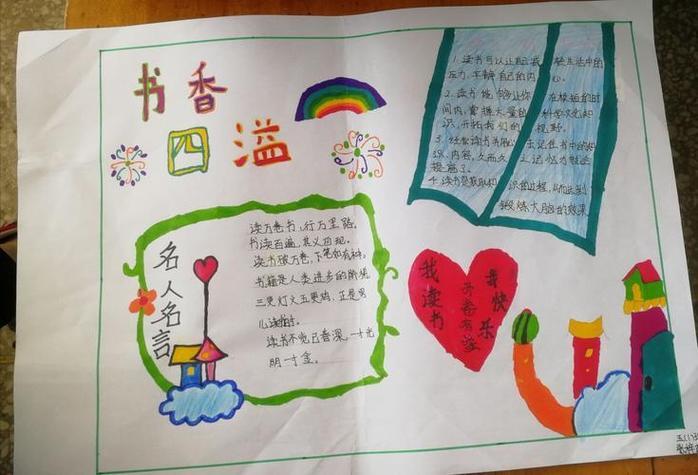 书香
四溢
1. 读书可以让自己我 轻生活中的
压力，平静自己的内 心。
2. 读书 能够让你 在较短的时
间内，掌握大量的 科学文史知
识，开拓我们的 视野。
3. 经常读书用心 去记住书中的知
识、内容，久而久 之记忆力就会
提高了。
4. 读书是获取知 识的过程，从而达到
锻炼大脑的效果
名人名言
读万卷书，行万里路。
书读百遍，其义自现。
读书破万卷，下笔如有神。
书籍是人类进步的阶梯
三更灯火五更鸡，正是男
儿读书时。
读书不觉已春深，一寸光
阴一寸金。
我读书
开卷有益
我快乐